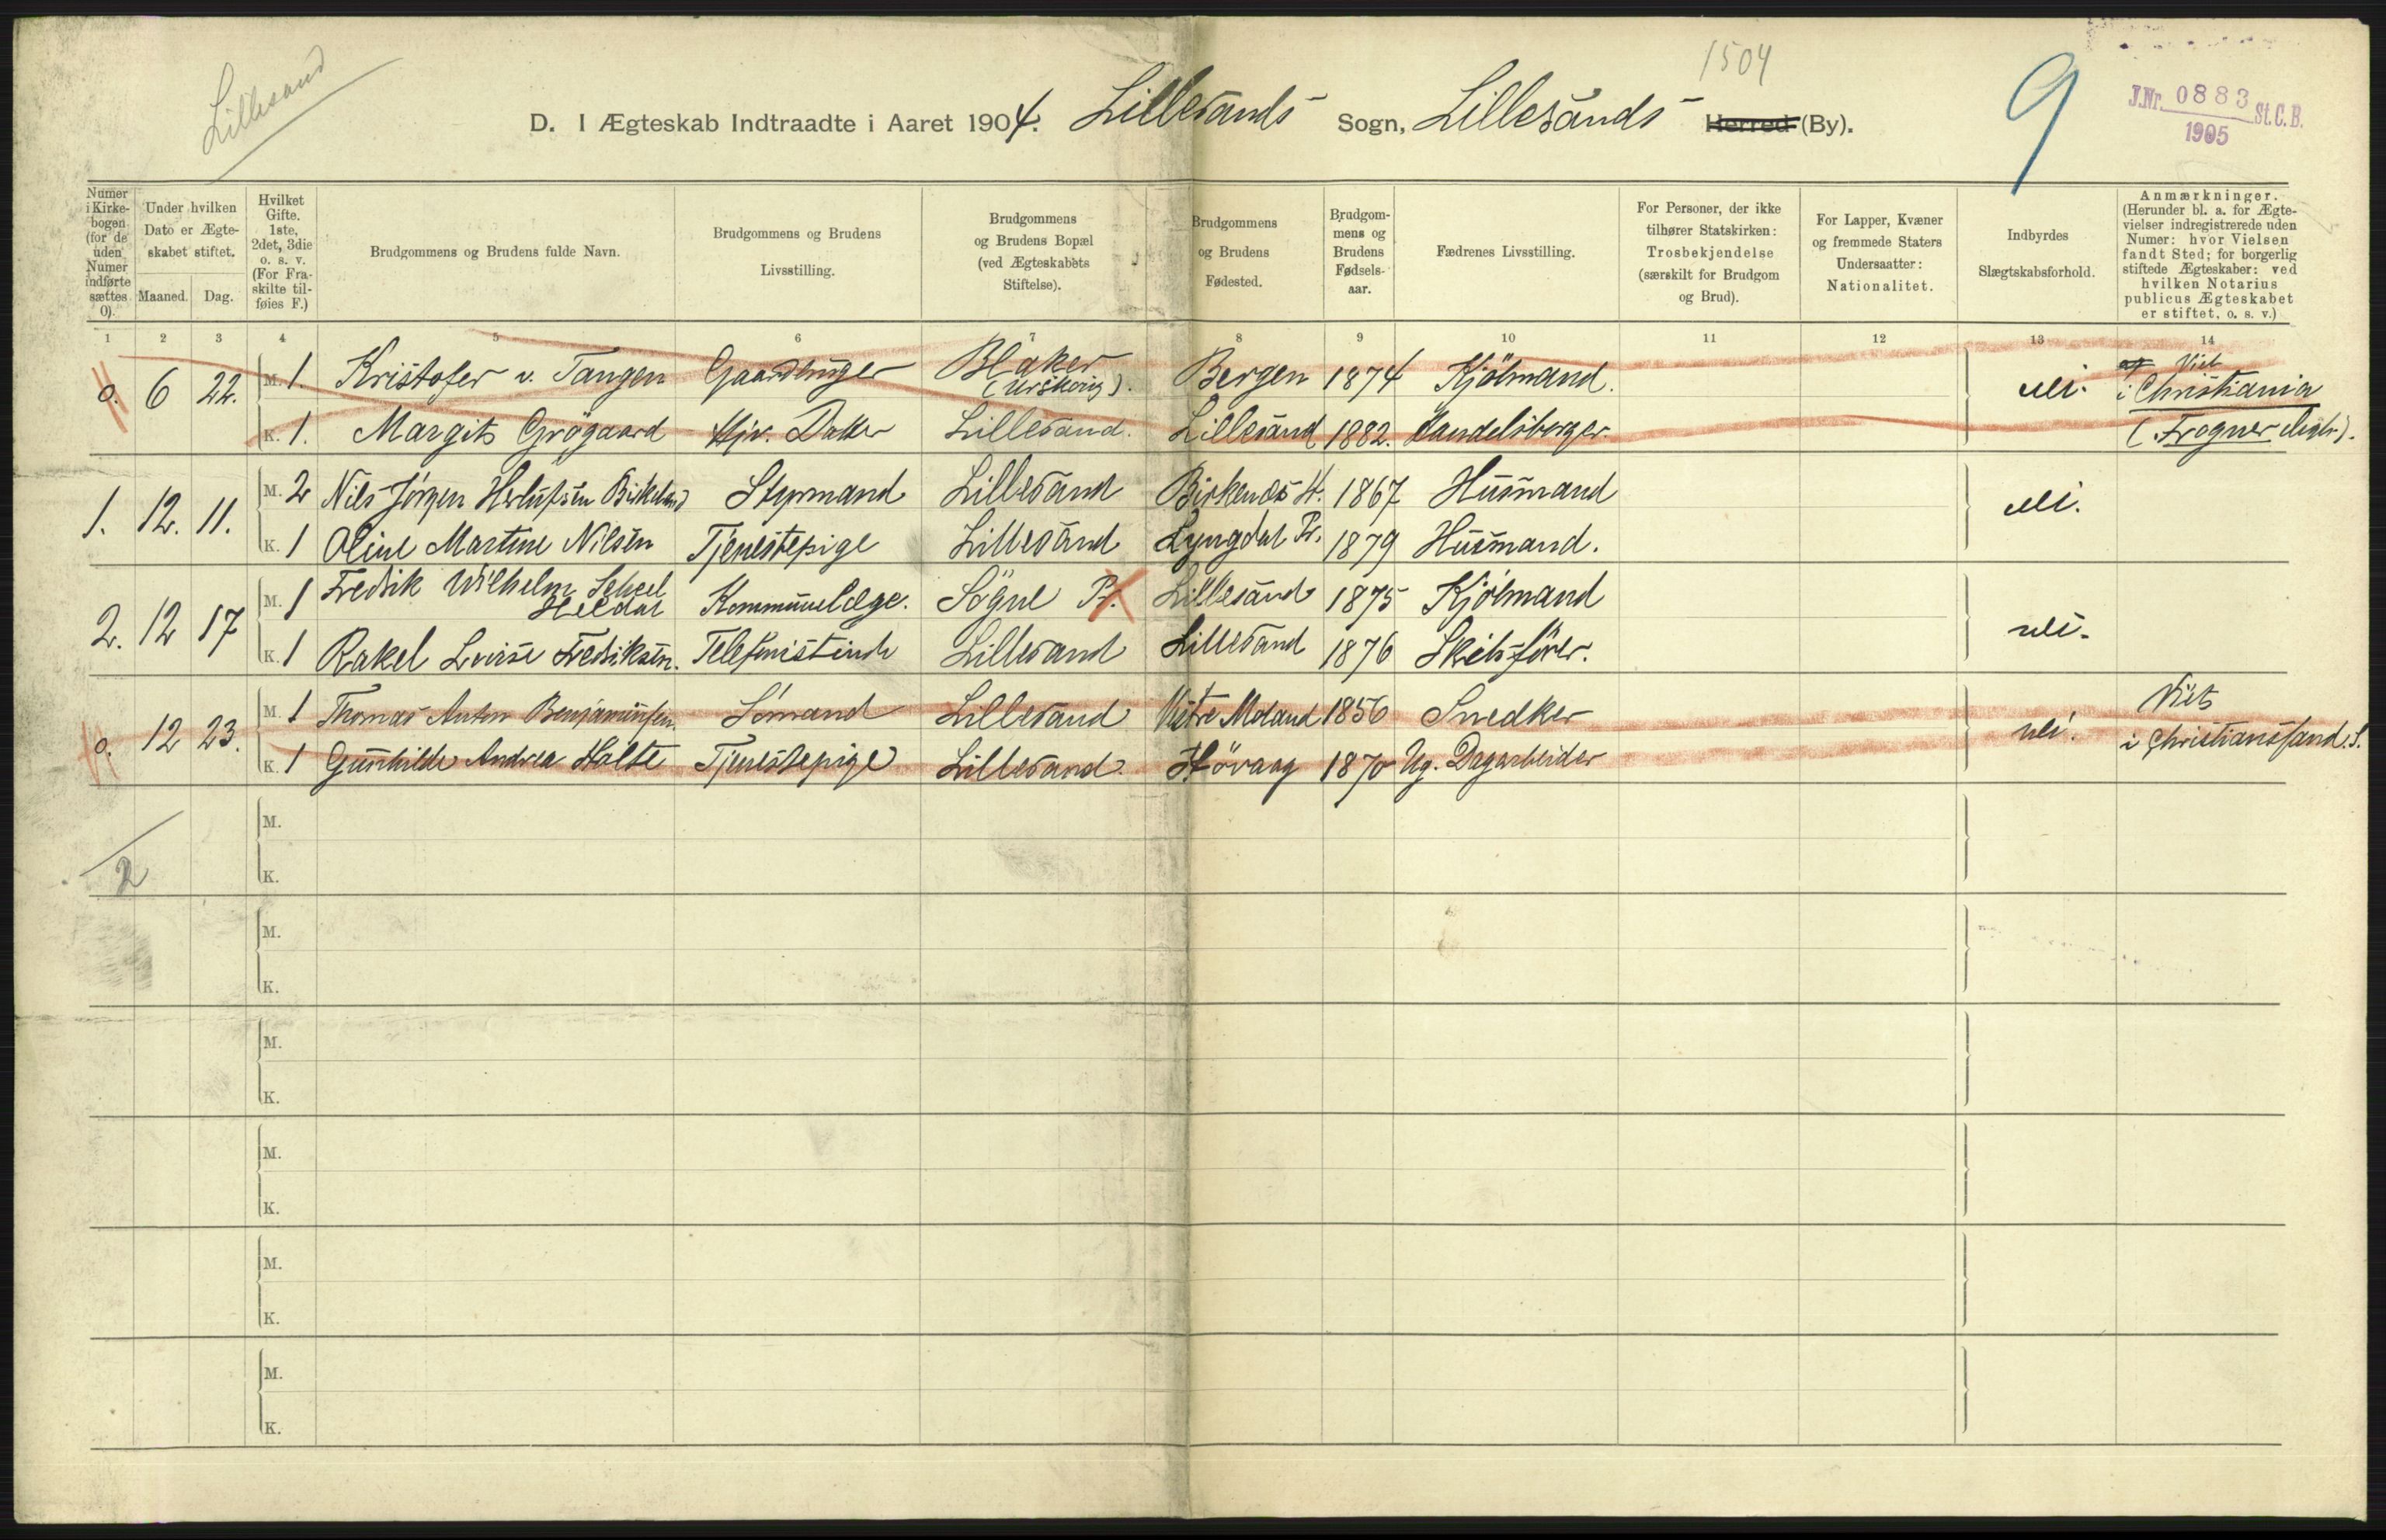 Lillesand
1504
9
J.Nr. 0883 St. C. B.
1905
D. I Ægteskab Indtraadte i Aaret 1904. Lillesands Sogn, Lillesands Herred (By).
Numer i Kirkebogen (for de uden Numer indførte sættes 0).
Under hvilken Dato er Ægteskabet stiftet.
Maaned. Dag.
Hvilket Gifte. 1ste, 2det, 3die o. s. v. (For Fraskilte tilføies F.)
Brudgommens og Brudens fulde Navn.
Brudgommens og Brudens Livsstilling.
Brudgommens og Brudens Bopæl (ved Ægteskabets Stiftelse).
Brudgommens og Brudens Fødested.
Brudgommens og Brudens Fødselsaar.
Fædrenes Livsstilling.
For Personer, der ikke tilhører Statskirken: Trosbekjendelse (særskilt for Brudgom og Brud).
For Lapper, Kvæner og fremmede Staters Undersaatter: Nationalitet.
Indbyrdes Slægtskabsforhold.
Anmærkninger. (Herunder bl. a. for Ægtevielser indregistrerede uden Numer: hvor Vielsen fandt Sted; for borgerlig stiftede Ægteskaber: ved hvilken Notarius publicus Ægteskabet er stiftet, o. s. v.)
1 2 3 4 5 6 7 8 9 10 11 12 13 14
0. 6 22. M. 1. Kristofer v. Tangen Gaardbruger Blaker (Urskoug). Bergen 1874 Kjöbmand. Nei. Viet i Christiania
K. 1. Margit Grögaard Hjv. Datter Lillesand. Lillesand 1882. Handelsborger. (Frogner Mgh.).
1. 12. 11. M. 2 Nils Jörgen Herlufsen Birkeland Styrmand Lillesand Birkenes H. 1867 Husmand Nei.
K. 1 Oline Martine Nilsen Tjenestepige Lillesand Lyngdal Pr. 1879 Husmand.
2. 12 17 M. 1 Fredrik Wilhelm Scheel Heldal Kommunelæge. Sögne Pr. Lillesand 1875 Kjöbmand nei.
K. 1 Rakel Lovise Fredriksen. Telefonistinde Lillesand Lillesand 1876 Skibsförer.
0. 12 23. M. 1 Thomas Anton Benjaminsen. Sömand Lillesand Vestre Moland 1856 Snedker nei. Viet
K. 1 Gunhilde Andrea Holte Tjenestepige Lillesand. Hövaag 1870 Ug. Dagarbeider i Christianssand. S.
M.
K.
2
M.
K.
M.
K.
M.
K.
M.
K.
M.
K.